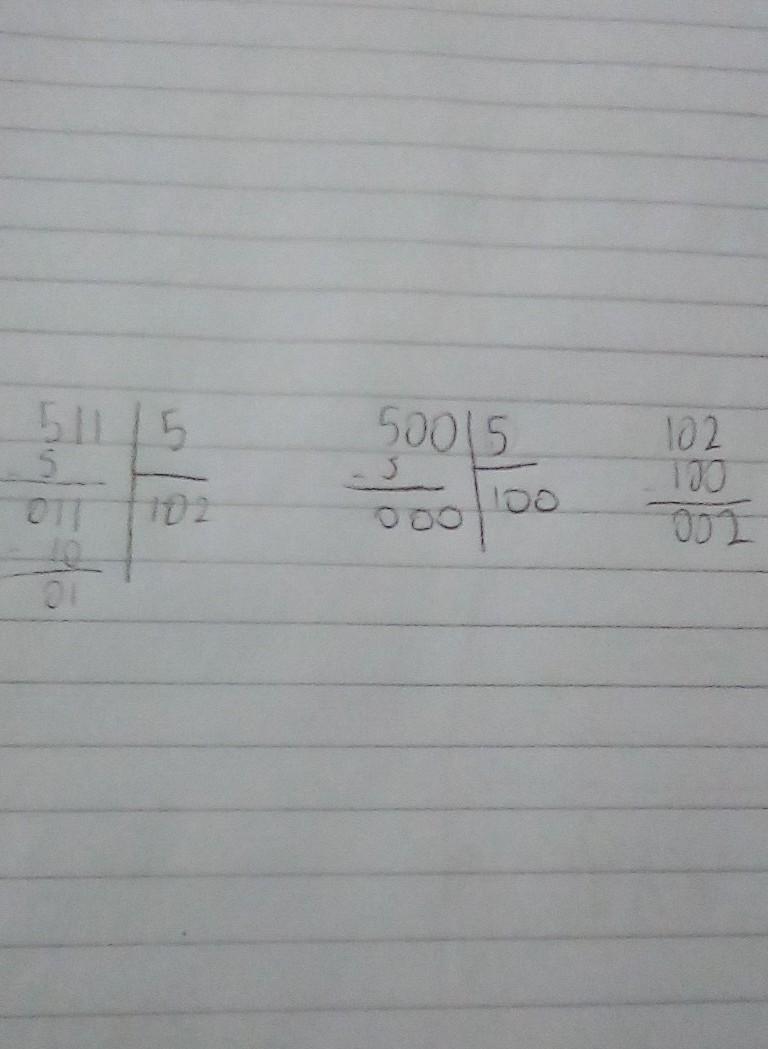 511 5
- 5
011 102
- 10
01
500 5
- 5
000 100
102
- 100
002